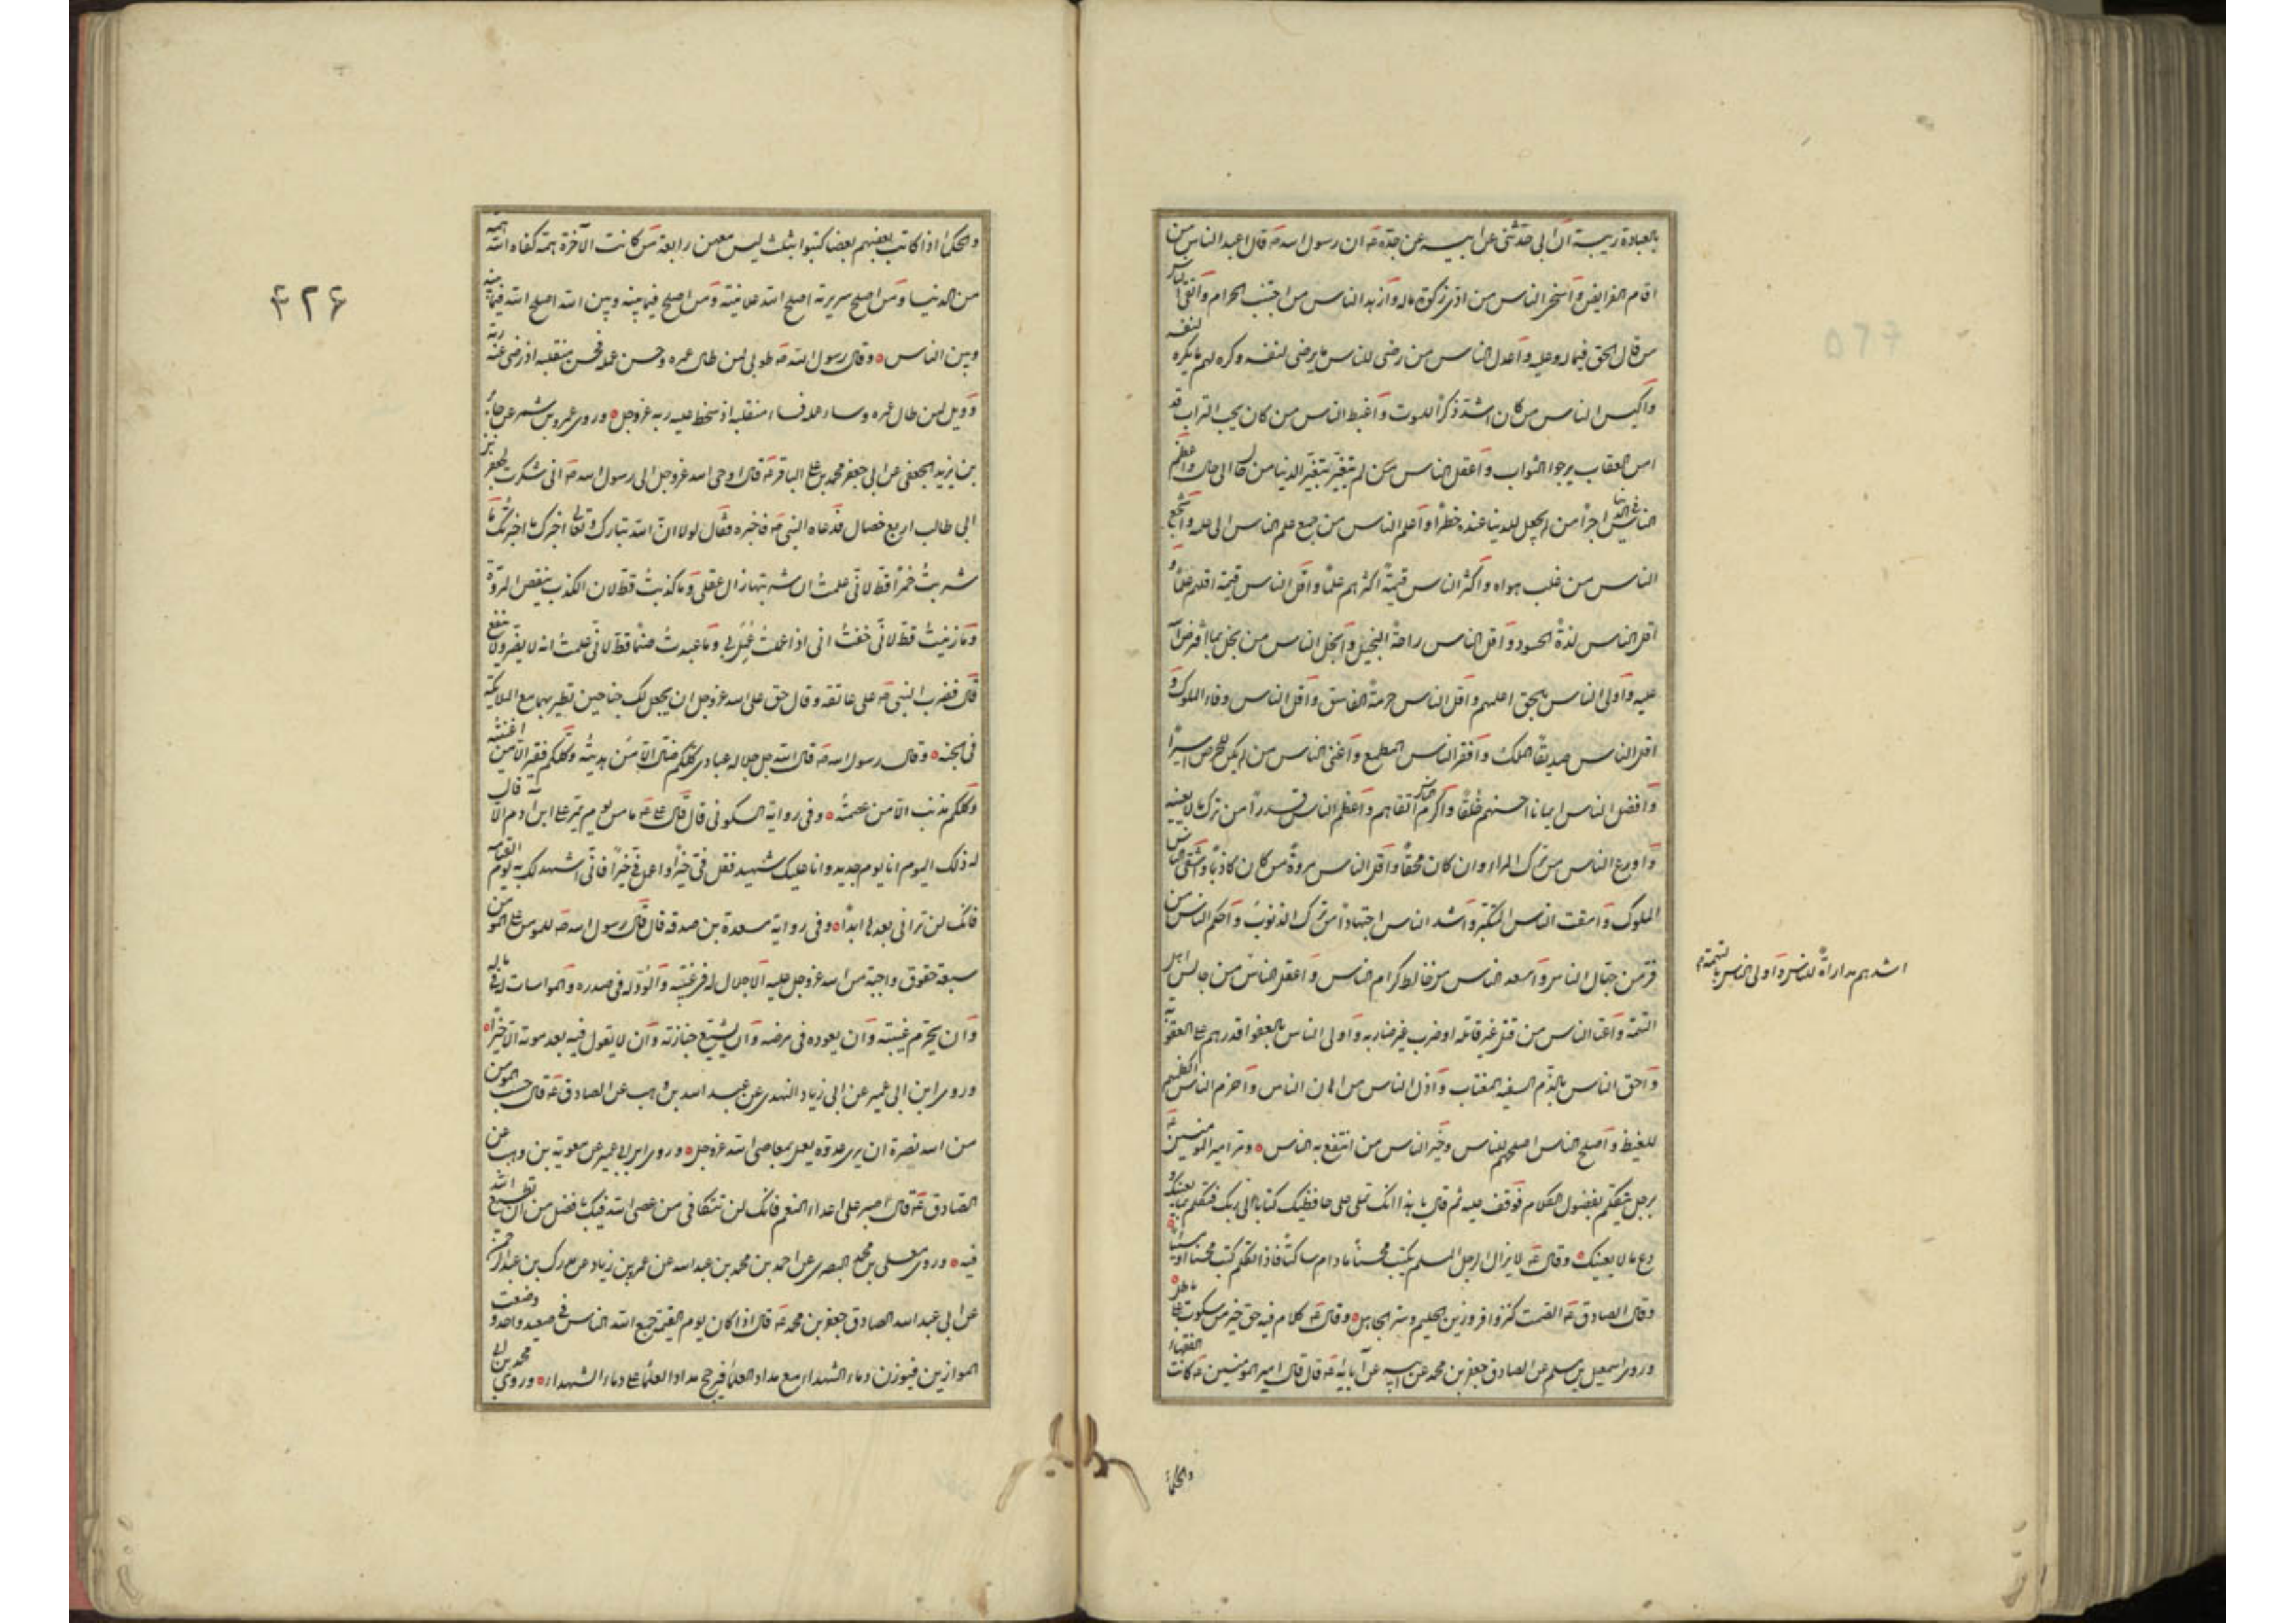 بالعبادة ريبة ان ابى حدثنى عن ابيه عن جده ع ان رسول الله ص قال اعبد الناس من
اقام الفرايض واسخى الناس من ادى زكوة ماله وازهد الناس من اجتنب الحرام واتقى الناس
من قال الحق فيما له وعليه واعدل الناس من رضى للناس ما يرضى لنفسه وكره لهم ما يكره لنفسه
واكيس الناس من كان اشد ذكرا للموت واغبط الناس من كان تحت التراب قد
امن العقاب يرجوا الثواب واغفل الناس من لم يتغير بتغير الدنيا من حال الى حال واعظم
الناس فى الدنيا خطرا من لم يجعل للدنيا عنده خطرا واعلم الناس من جمع علم الناس الى علمه واشجع
الناس من غلب هواه واكثر الناس قيمة اكثرهم علما واقل الناس قيمة اقلهم علما و
اقل الناس لذة الحسود واقل الناس راحة البخيل وابخل الناس من بخل بما افترض الله
عليه واولى الناس بالحق اعلمهم به واقل الناس حرمة الفاسق واقل الناس وفاء الملوك و
اقل الناس صديقا الملك وافقر الناس الطمع واغنى الناس من لم يكن للحرص اسيرا
وافضل الناس ايمانا احسنهم خلقا واكرم الناس اتقاهم واعظم الناس قدرا من ترك ما لا يعنيه
واورع الناس من ترك المراء وان كان محقا واقل الناس مروة من كان كاذبا واشقى الناس
الملوك وامقت الناس المتكبر واشد الناس اجتهادا من ترك الذنوب واحكم الناس من
فر من جهال الناس واسعد الناس من خالط كرام الناس واعقل الناس
اشدهم مداراة للناس واولى الناس بالتهمة م
من جالس اهل
التهمة واعتى الناس من قتل غير قاتله او ضرب غير ضاربه واولى الناس بالعفو اقدرهم على العقوبة
واحق الناس بالذم السفيه المغتاب واذل الناس من اهان الناس واحزم الناس اكظمهم
للغيظ واصلح الناس اصلحهم للناس وخير الناس من انتفع به الناس ومر امير المؤمنين ع
برجل يتكلم بفضول الكلام فوقف عليه ثم قال يا هذا انك تملى على حافظيك كتابا الى ربك فتكلم بما يعنيك و
دع ما لا يعنيك وقال ع لا يزال الرجل المسلم يكتب محسنا ما دام ساكتا فاذا تكلم كتب محسنا او مسيئا
وقال الصادق ع الصمت كنز وافر وزين الحليم وستر الجاهل وقال ع كلام فيه حق خير من سكوت على باطل
وروى اسمعيل بن مسلم عن الصادق جعفر بن محمد عن ابيه عن آبائه ع قال قال امير المؤمنين ع كانت الفقهاء
والحكماء
۴۲۶
والحكماء اذا كاتب بعضهم بعضا كتبوا بثلث ليس معهن رابعة من كانت الآخرة همته كفاه الله همه
من الدنيا ومن اصلح سريرته اصلح الله علانيته ومن اصلح فيما بينه وبين الله اصلح الله فيما بينه
وبين الناس وقال رسول الله ص طوبى لمن طال عمره وحسن عمله فحسن منقلبه اذ رضى عنه ربه
وويل لمن طال عمره وساء عمله فساء منقلبه اذ سخط عليه ربه عز وجل وروى عمرو بن شمر عن جابر
بن يزيد الجعفى عن ابى جعفر محمد بن على الباقر ع قال اوحى الله عز وجل الى رسول الله ص انى شكرت لجعفر بن
ابى طالب اربع خصال فدعاه النبى ص فاخبره فقال لولا ان الله تبارك وتعالى اخبرك ما اخبرتك ما
شربت خمرا قط لانى علمت ان شربتها زال عقلى وما كذبت قط لان الكذب ينقص المروة
وما زنيت قط لانى خفت انى اذا عملت عمل بى وما عبدت صنما قط لانى علمت انه لا يضر ولا ينفع
قال فضرب النبى ص على عاتقه وقال حق على الله عز وجل ان يجعل لك جناحين تطير بهما مع الملائكة
فى الجنة وقال رسول الله ص قال الله جل جلاله عبادى كلكم ضال الا من هديته وكلكم فقير الا من اغنيته
وكلكم مذنب الا من عصمته وفى رواية السكونى قال قال على ع ما من يوم يمر على ابن ادم الا قال
له ذلك اليوم انا يوم جديد وانا عليك شهيد فقل فى خيرا واعمل فى خيرا فانى اشهد لك به يوم القيامة
فانك لن ترانى بعدها ابدا وفى رواية مسعدة بن صدقة قال قال رسول الله ص للمومن على المومن
سبعة حقوق واجبة من الله عز وجل عليه الاجلال له فى غيبته والود له فى صدره والمواسات له فى ماله
وان يحرم غيبته وان يعوده فى مرضه وان يشيع جنازته وان لا يقول فيه بعد موته الا خيرا
وروى ابن ابى عمير عن ابى زياد النهدى عن عبد الله بن وهب عن الصادق ع قال حسب المومن
من الله نصرة ان يرى عدوه يعمل بمعاصى الله عز وجل وروى ابن ابى عمير عن معوية بن وهب عن
الصادق ع قال اصبر على اعداء النعم فانك لن تكافى من عصى الله فيك بافضل من ان تطيع الله
فيه وروى معلى بن محمد البصرى عن احمد بن محمد بن عبد الله عن عمرو بن زياد عن مدرك بن عبد الرحمن
عن ابى عبد الله الصادق جعفر بن محمد ع قال اذا كان يوم القيمة جمع الله الناس فى صعيد واحد ووضعت
الموازين فيوزن دماء الشهداء مع مداد العلماء فيرجح مداد العلماء على دماء الشهداء وروى محمد بن ابى